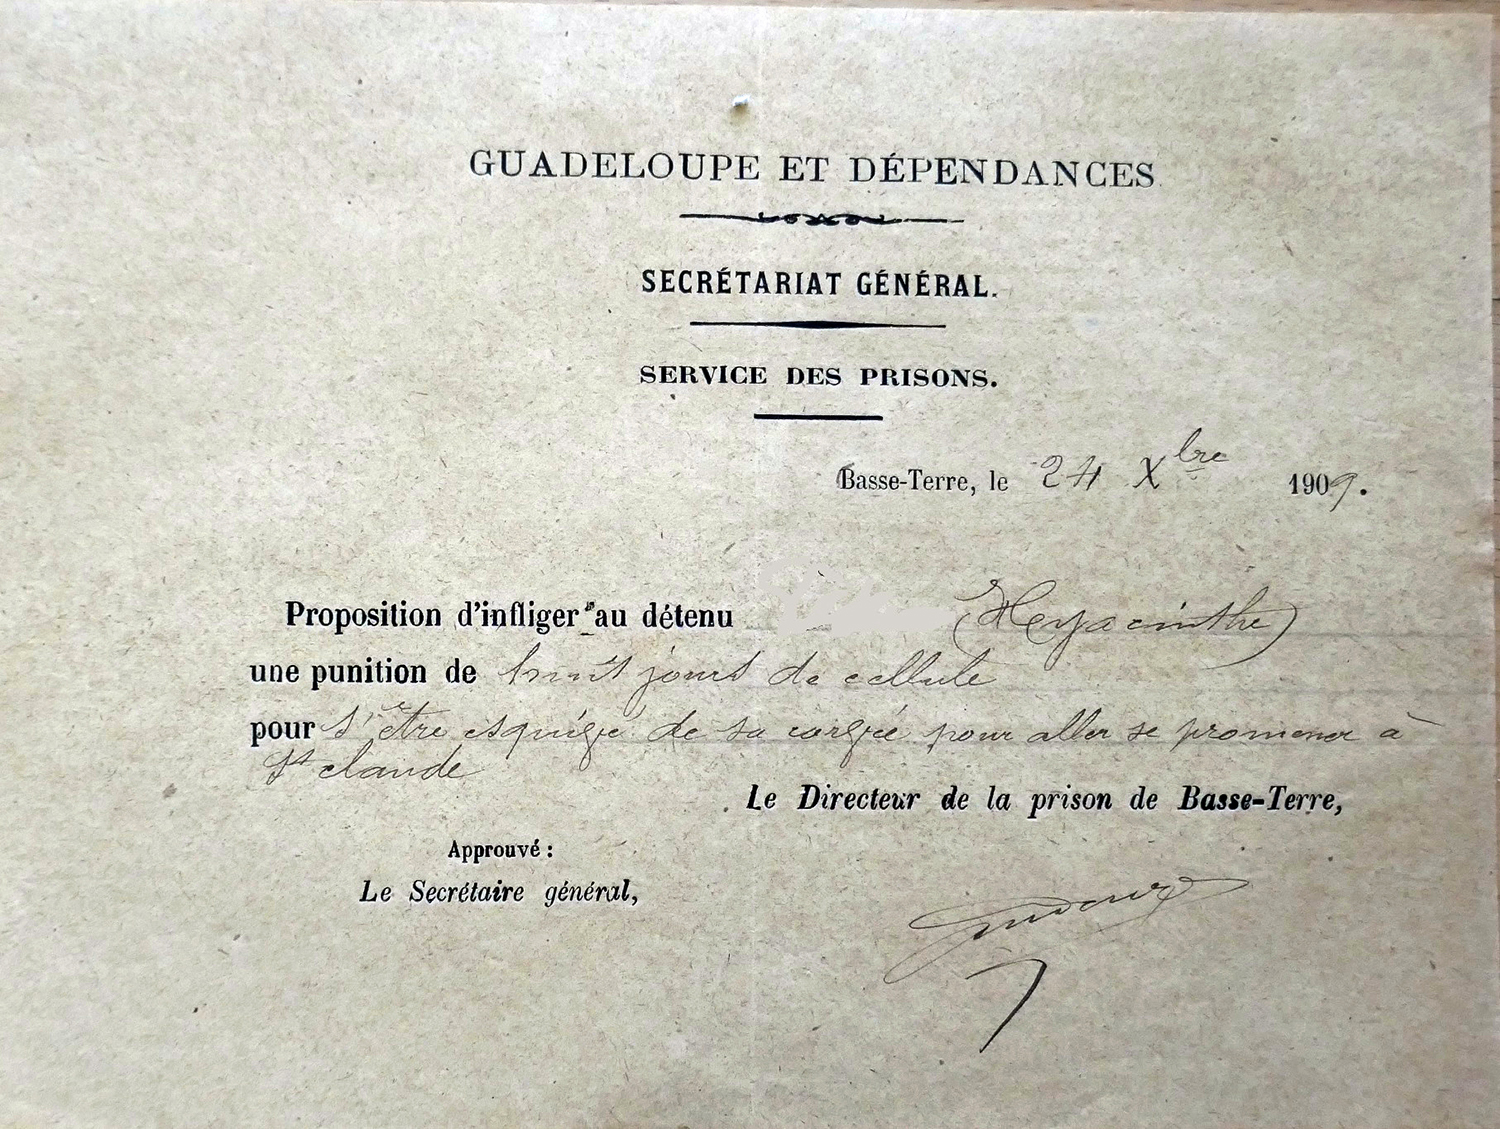 GUADELOUPE ET DÉPENDANCES
SECRÉTARIAT GÉNÉRAL.
SERVICE DES PRISONS.
Basse-Terre, le 24 Xbre 1909.
Proposition d'infliger au détenu (Hyacinthe)
une punition de huit jours de cellule
pour s'être esquigé de sa corvée pour aller se promener à
St claude
Le Directeur de la prison de Basse-Terre,
Approuvé :
Le Secrétaire général,